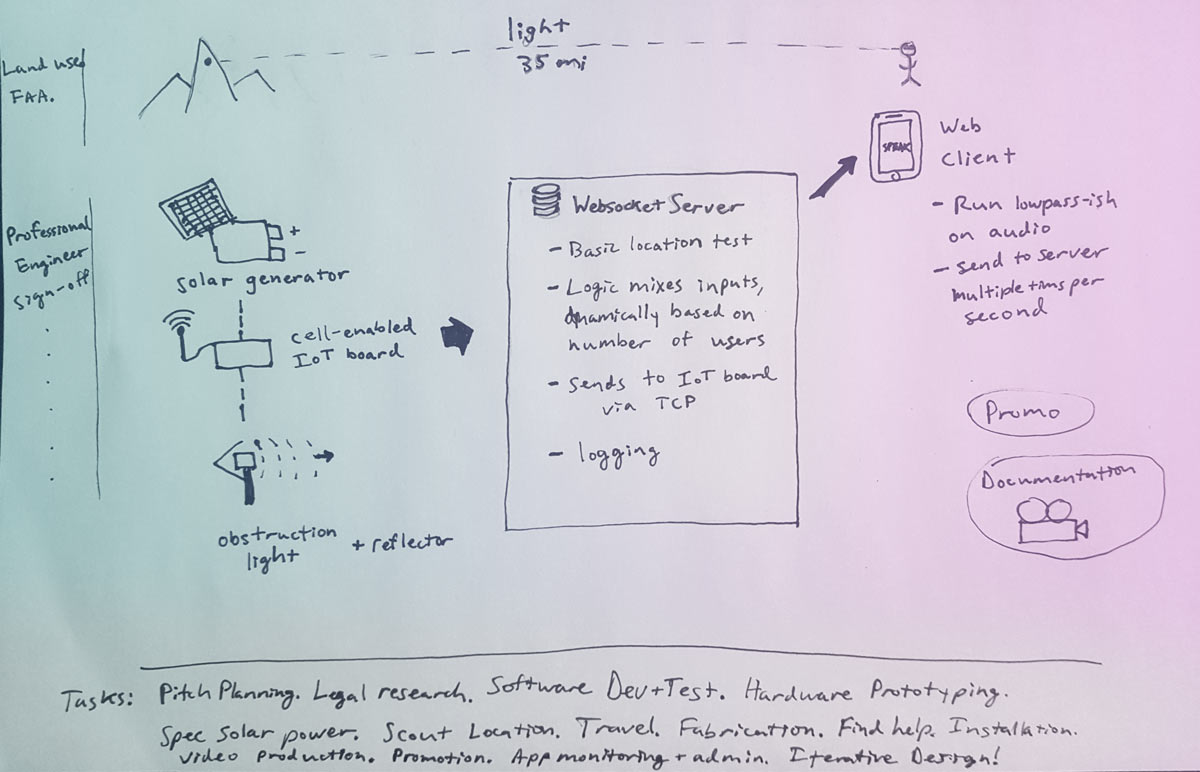 light
35 mi
Land use,
FAA.
Professional
Engineer
Sign-off
solar generator
+
-
cell-enabled
IoT board
obstruction
light
+ reflector
Websocket Server
- Basic location test
- Logic mixes inputs,
dynamically based on
number of users
- Sends to IoT board
via TCP
- logging
SPEAK
Web
Client
- Run lowpass-ish
on audio
- send to server
multiple tims per
second
Promo
Documentation
Tasks: Pitch Planning. Legal research. Software Dev+Test. Hardware Prototyping.
Spec Solar power. Scout Location. Travel. Fabrication. Find help. Installation.
Video production. Promotion. App monitoring + admin. Iterative Design!